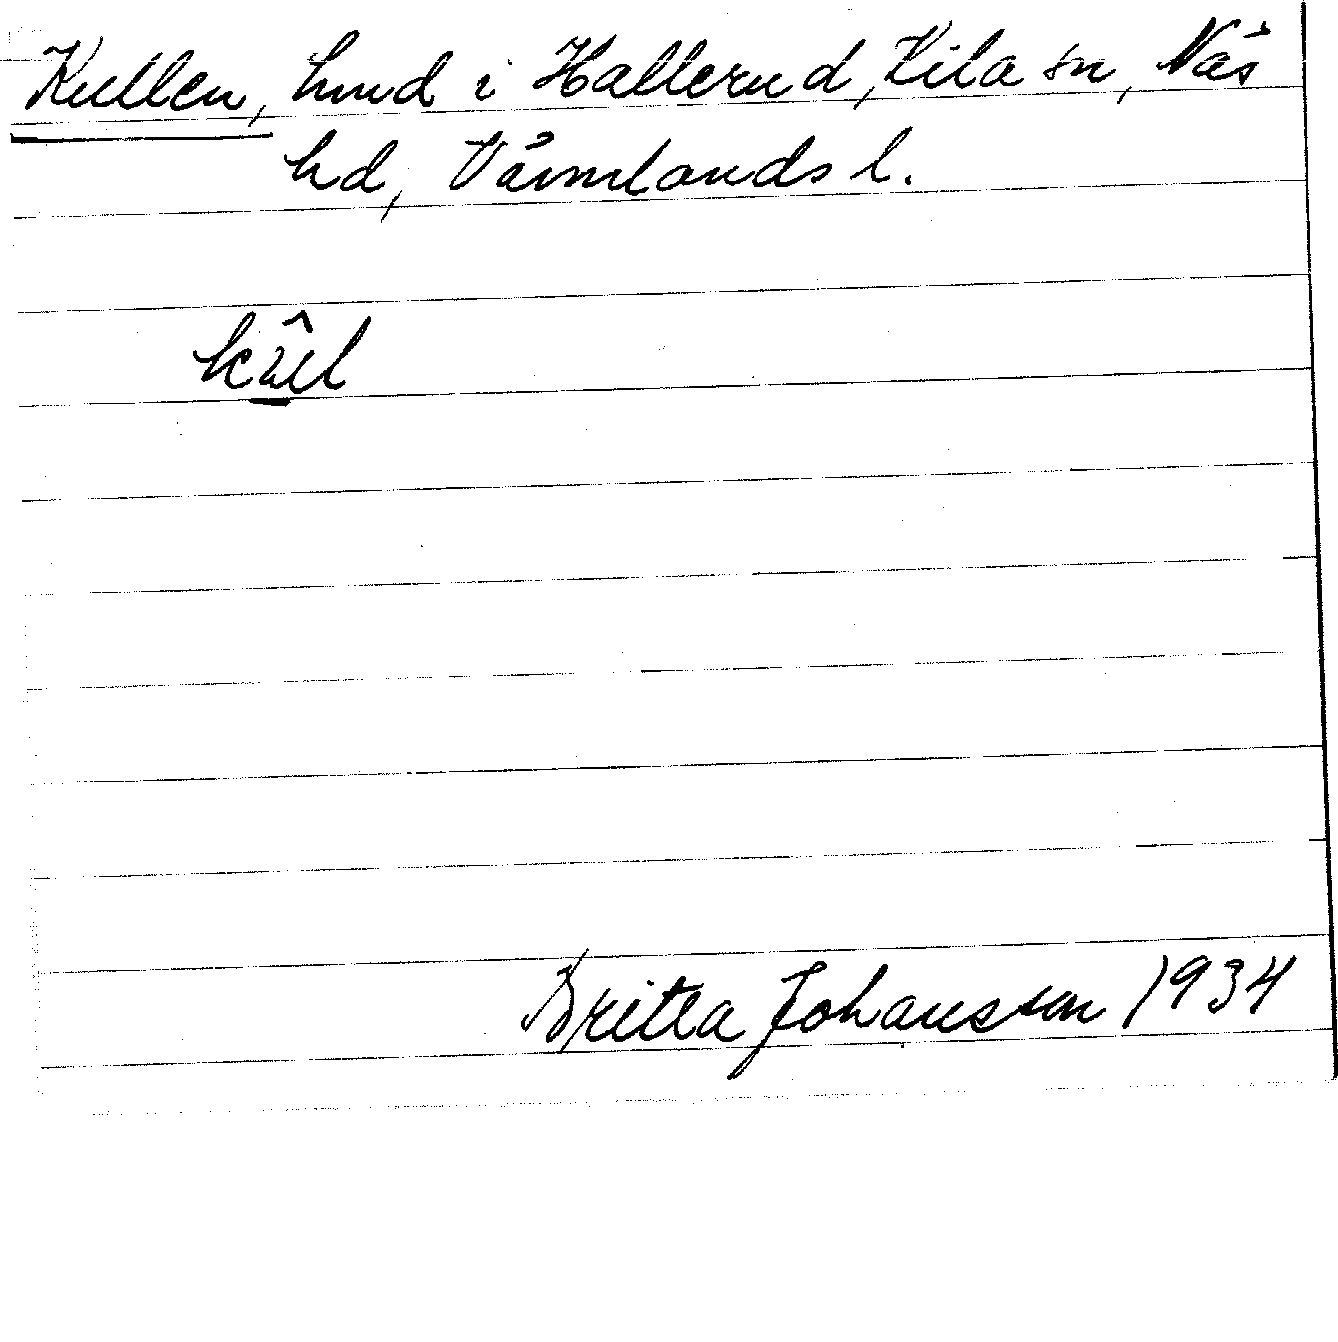 Kullen, hmd i Hallerud, Kila sn, Näs
hd, Värmlands l.
Britta Johansson 1934